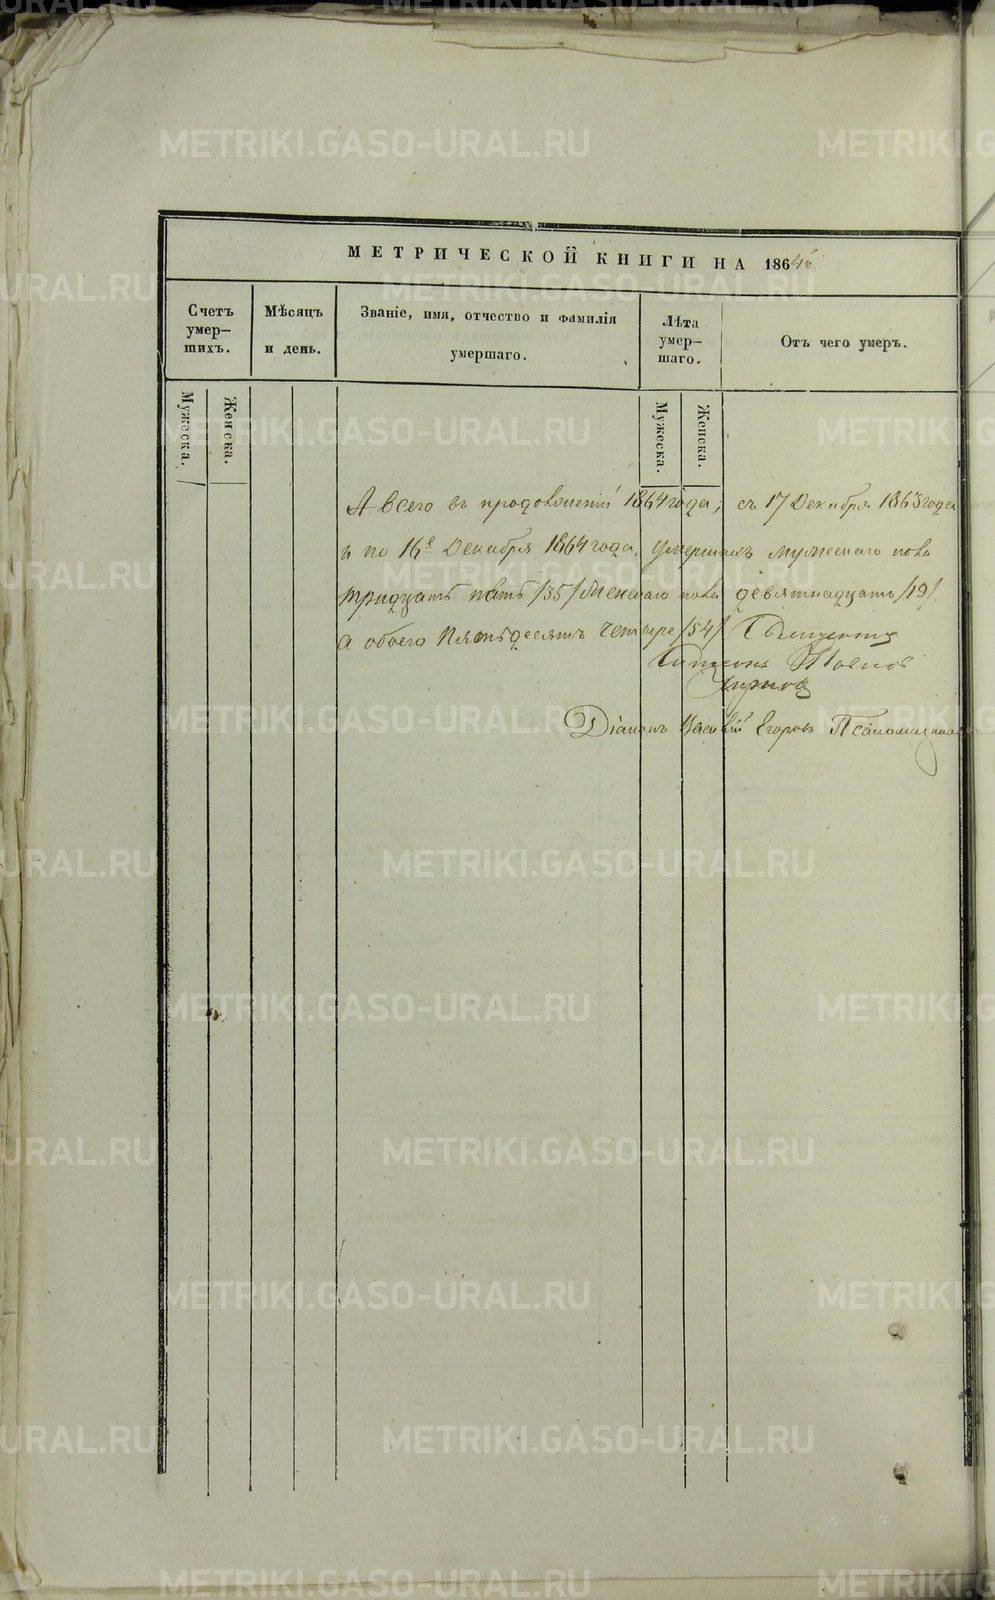 МЕТРИЧЕСКОЙ КНИГИ НА 1864й
Счетъ умер–шихъ.
Мѣсяцъ и день.
Званіе, имя, отчество и фамилія умершаго.
Лѣта умер–шаго.
Отъ чего умеръ.
Мужеска.
Женска.
Мужеска.
Женска.
А всего въ продолженіи 1864 года, съ 17 Декабря 1863 года
и по 16е Декабря 1864 года, умершихъ мужескаго пола
тридцать пять /35/ женскаго пола девятнадцать /19/
а обоего пятьдесятъ четыре /54/ Священникъ
Симеонъ
Діаконъ Василій Егоровъ
METRIKI.GASO-URAL.RU